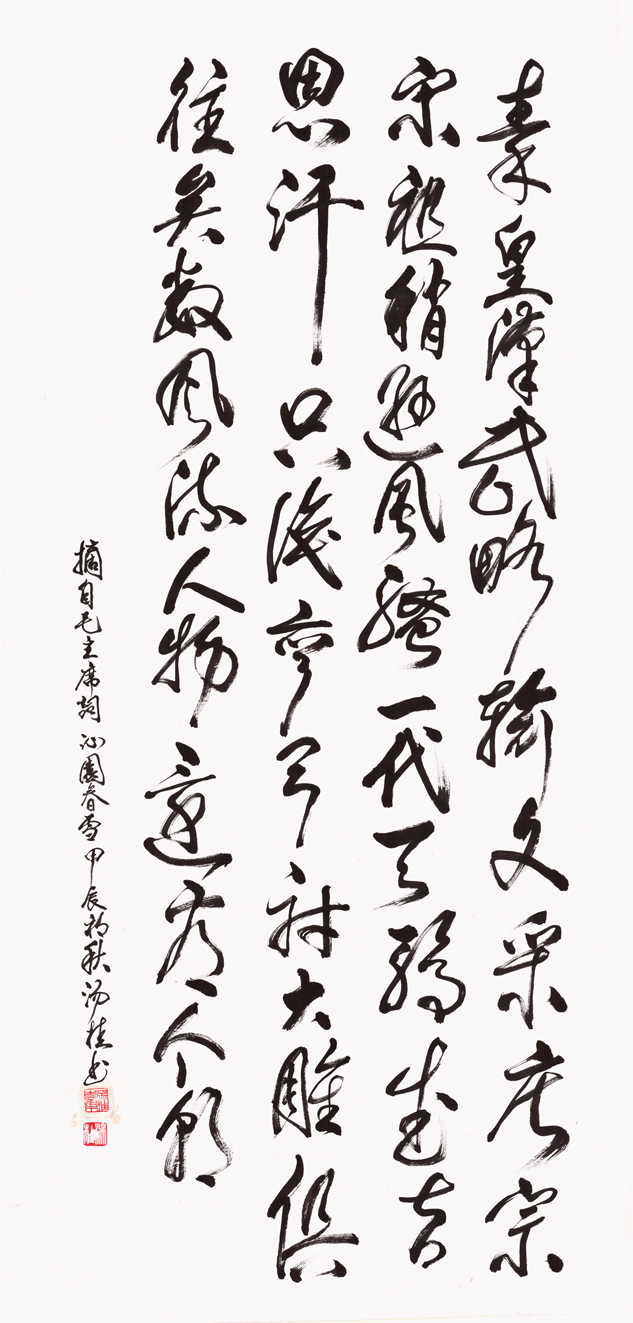 秦皇漢武略輸文采唐宗
宋祖稍遜風騷一代天驕成吉
思汗只識彎弓射大雕俱
往矣数风流人物還看今朝
摘自毛主席詞沁園春雪甲辰初秋汤桂书